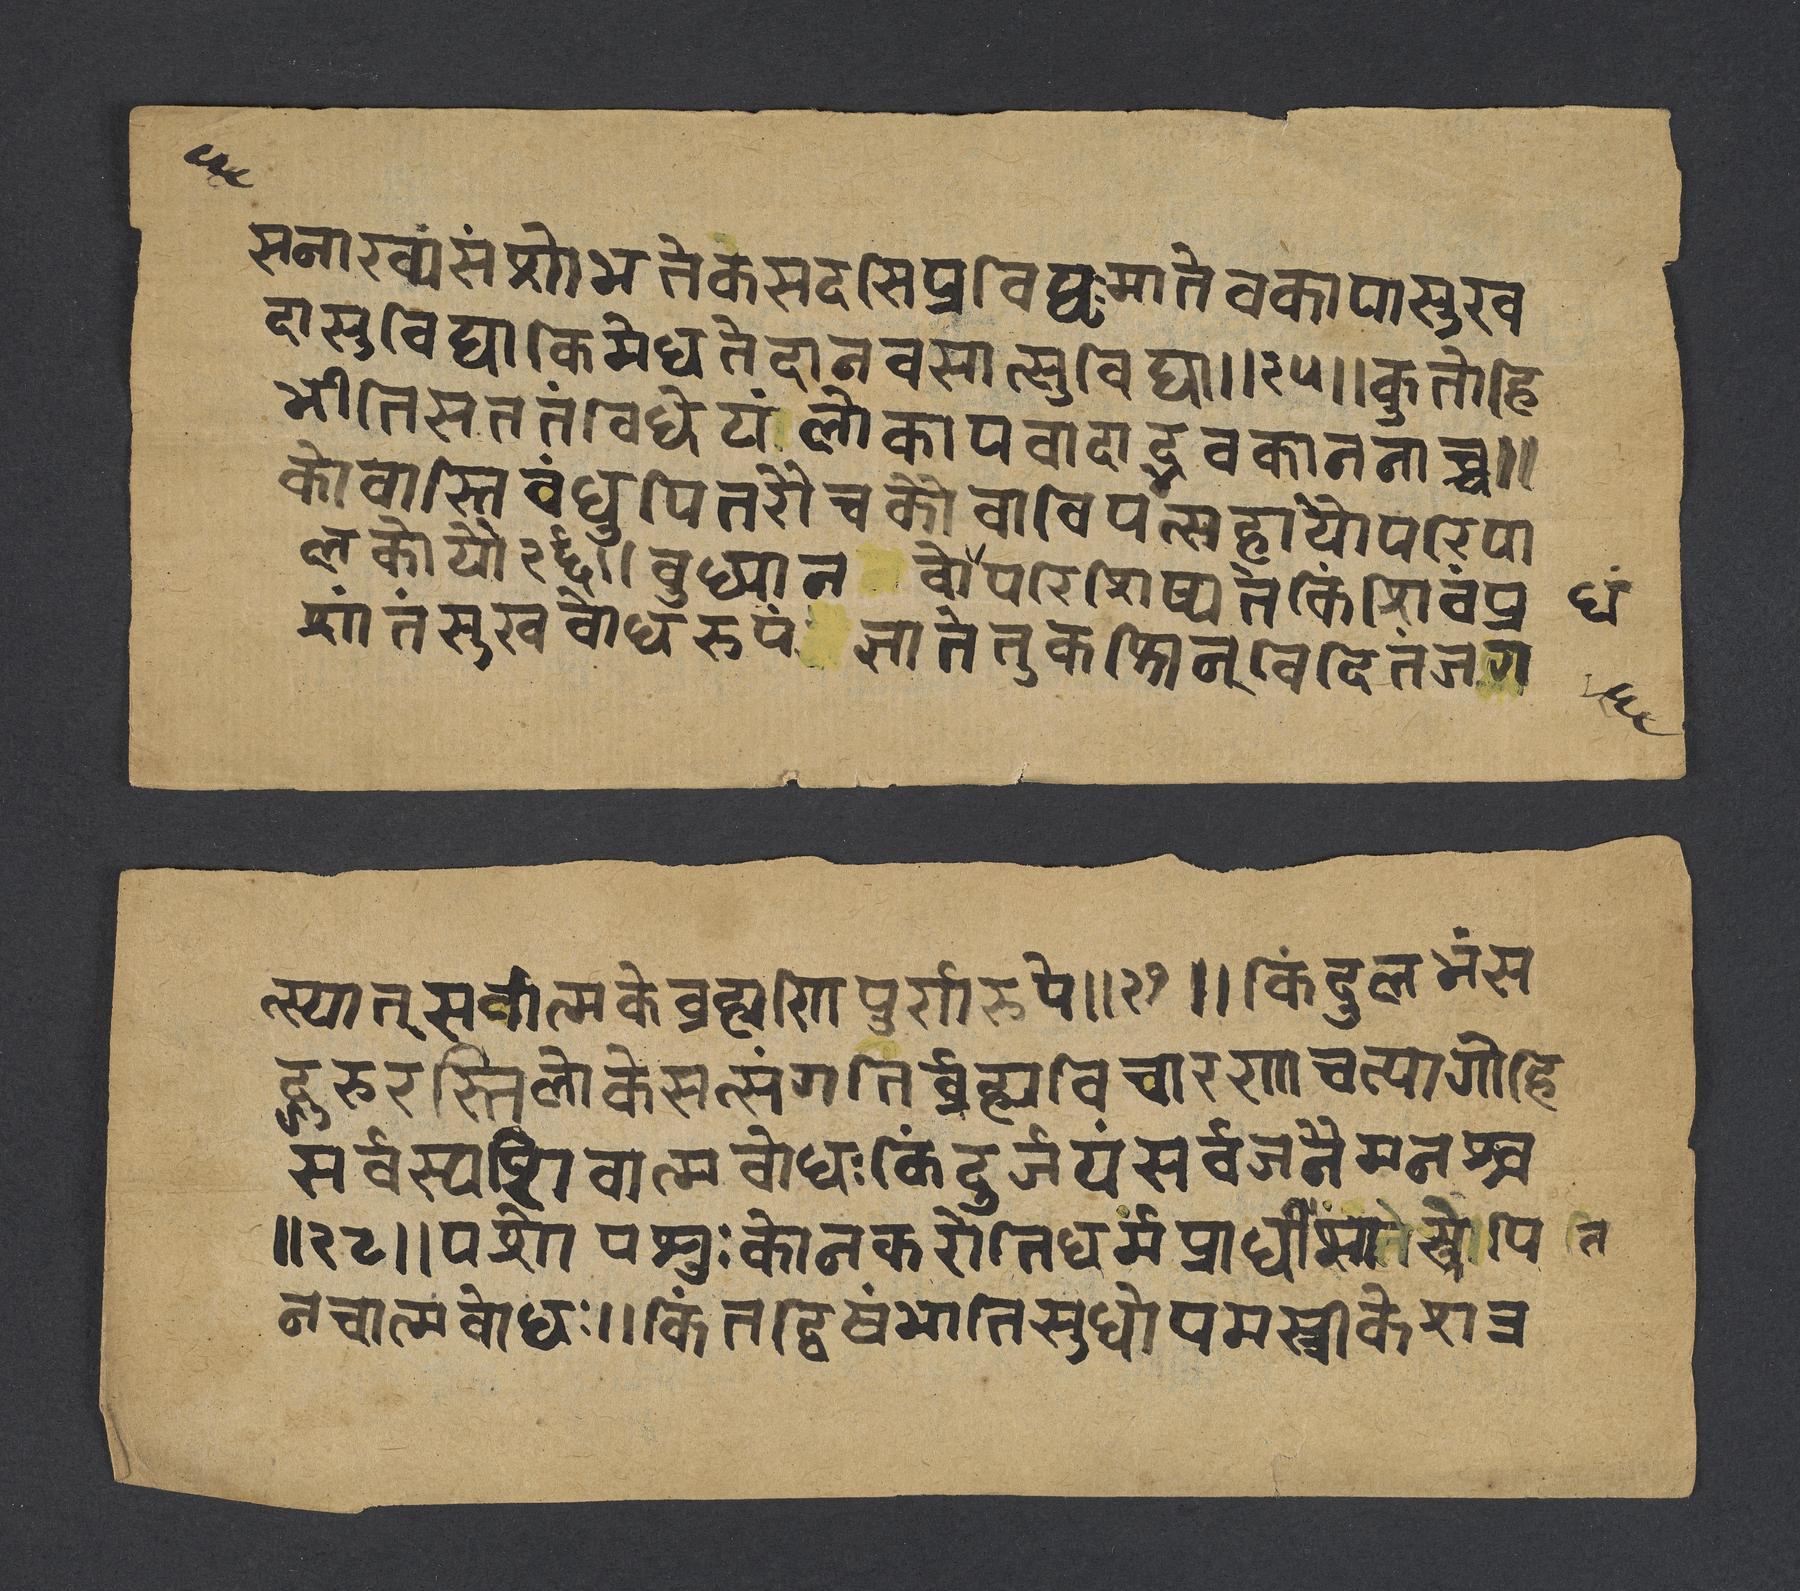 सनारव्यंसंशोभतेकेसदसिप्रविष्टःमातेवकापासुख
दासुविद्याकिमेधतेदानवसात्सुविद्या॥२५॥कुतोहि
भीतिसततंविधेयांलोकापवादाद्भवकाननाच्च॥
कोवास्तिवंधुपितरौचकौवाविपत्सहायोपरिपा
लकोयौ२६॥वुध्यानवोपरिशिष्यतेकिंशिवंप्र
धं
शांतंसुखवोधरुपंज्ञातेतुकस्मिन्विदितंजग
त्स्यात्सर्वात्मकेव्रह्मणिपुर्णरुपे॥२७॥किंदुलभंस
द्गुरुरस्तिलोकेसत्संगतिर्व्रह्मविचारणाचत्यागोहि
सर्वस्यशिवात्मवोधःकिंदुर्जयंसर्वजनैमनश्च
॥२८॥पशोपशुःकोनकरोतिधर्मप्राधीशास्त्रोपि
नचात्मवोधः॥किंतद्विषंभातिसुधोपमस्त्रीकेशत्र